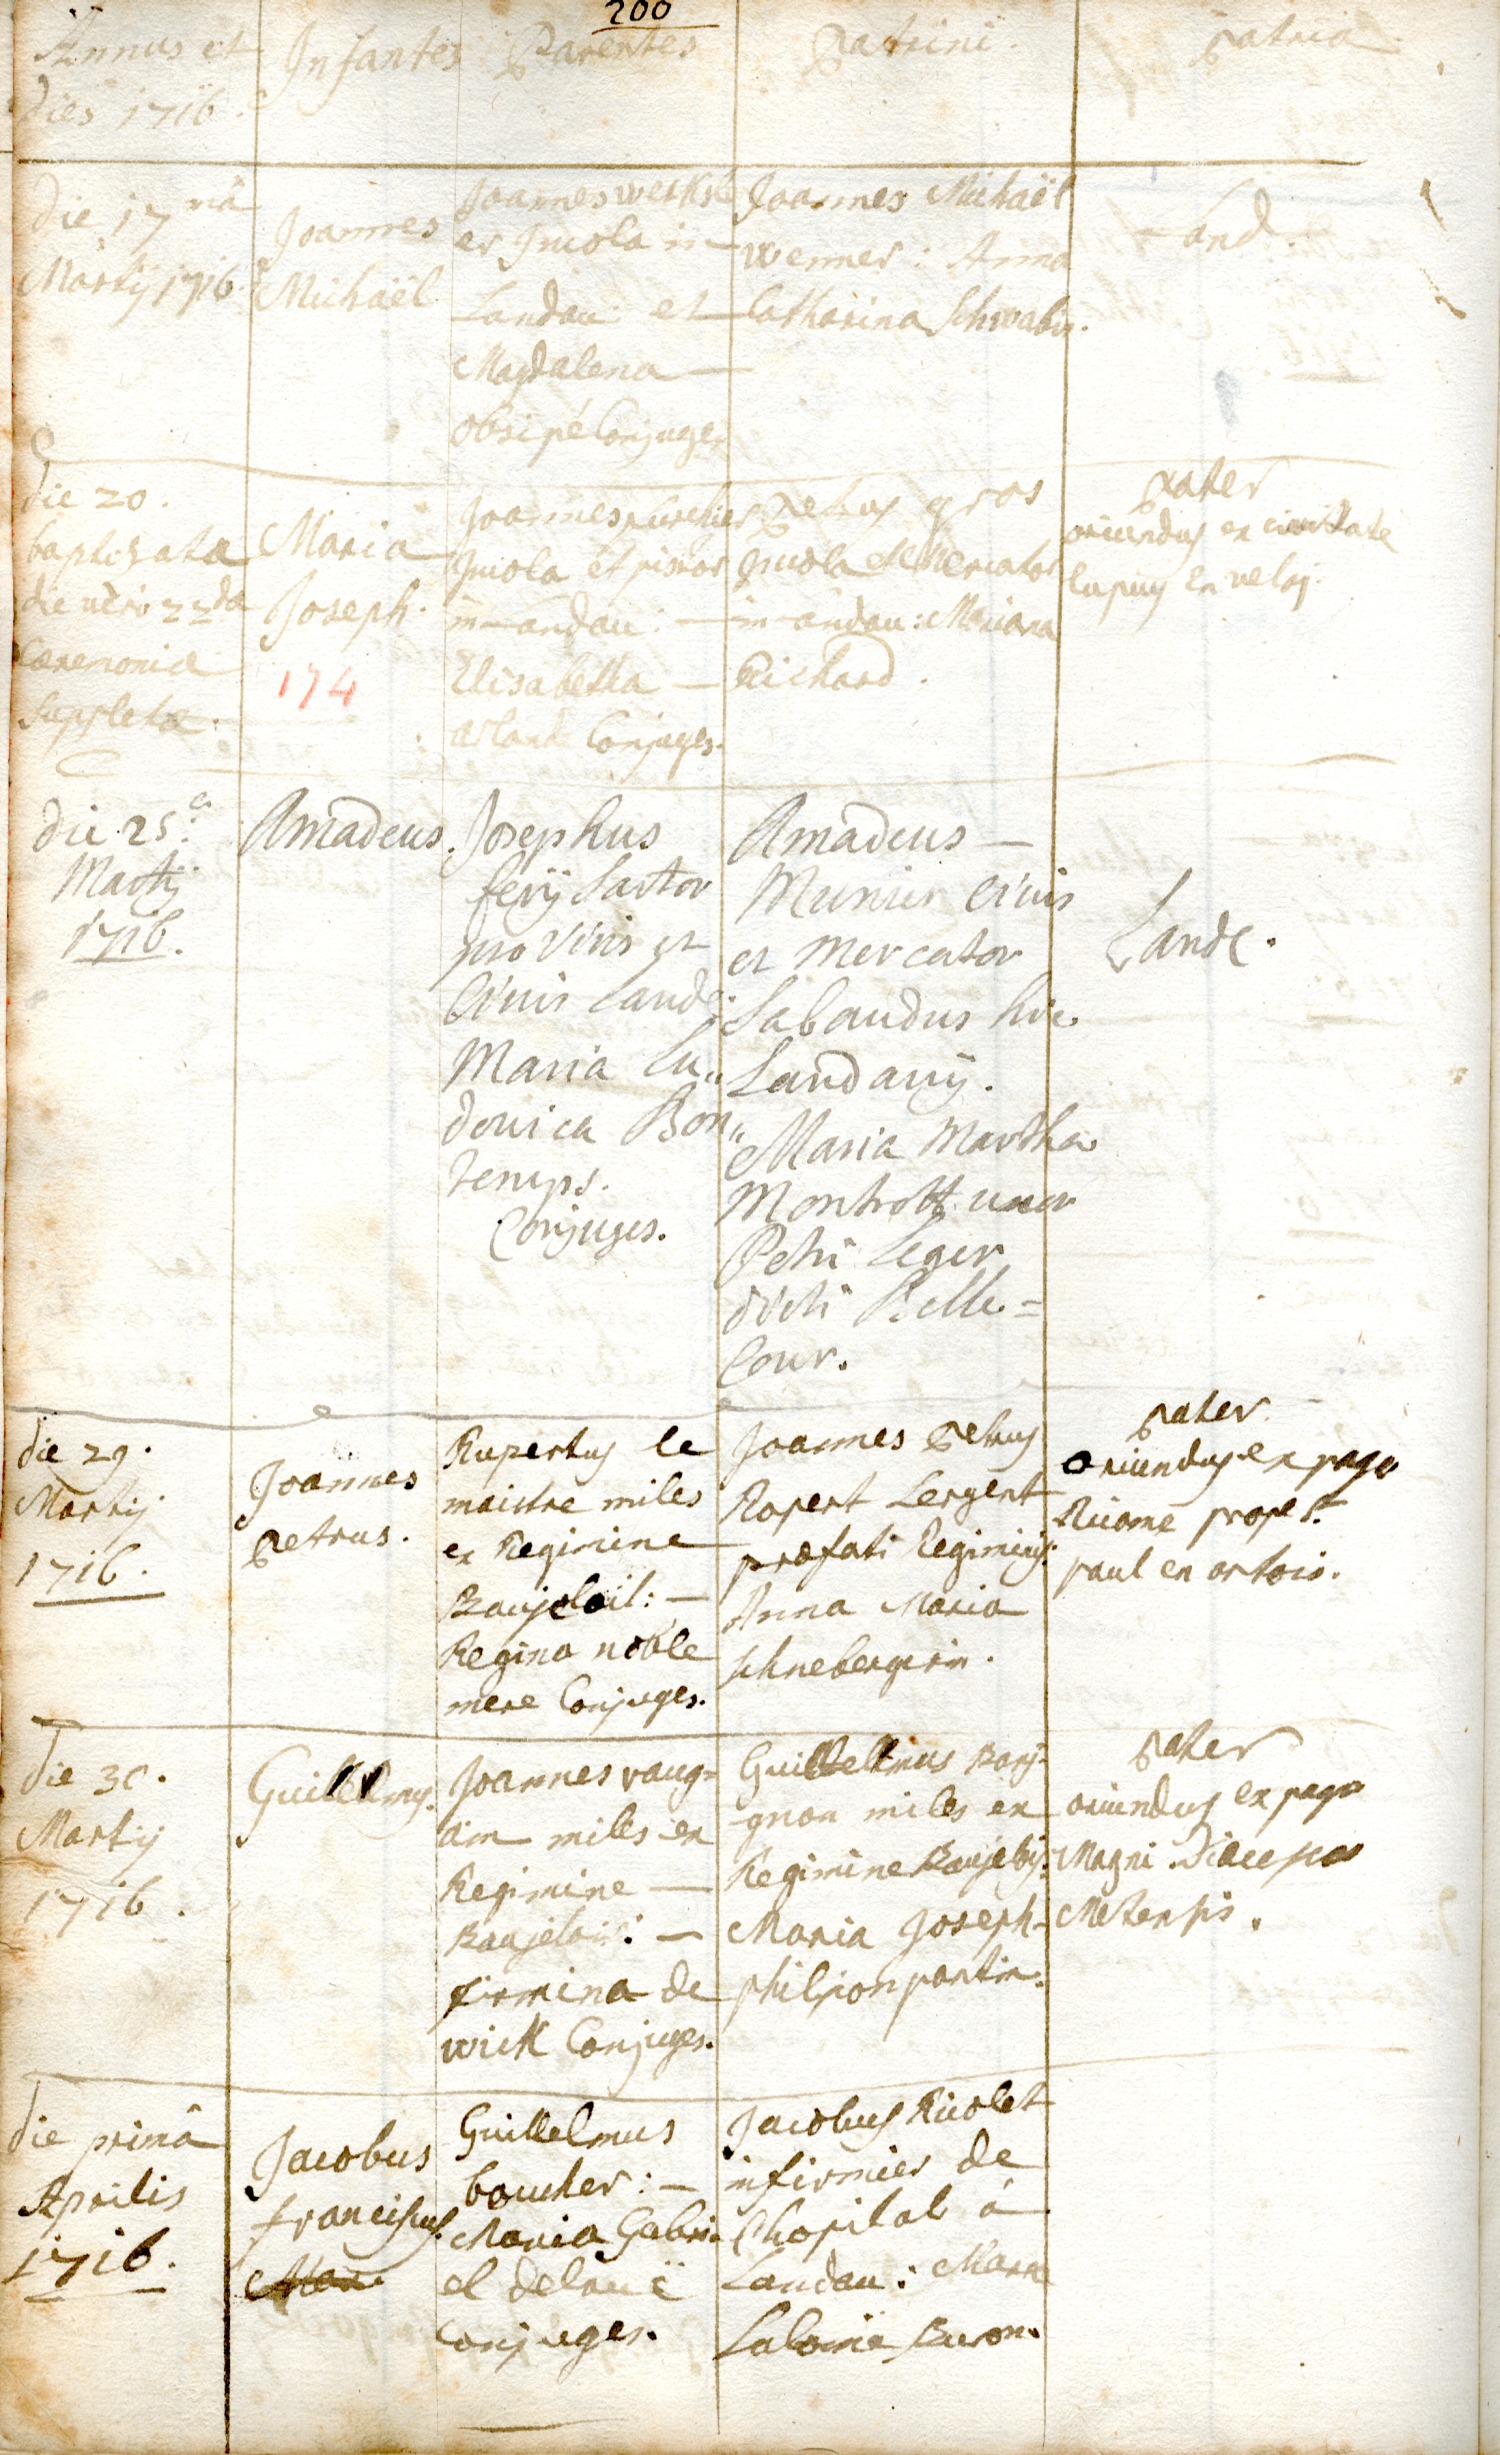 200
Annus et
dies 1716.
Infantes
Parentes
Patrini.
Patria.
die 17 mâ
Martij 1716.
Joannes
Michaël
Joannes
er Incola in
Landau: et
Magdalena —
Conjuges
Joannes Michaël
wenner: Anna
Catharina Schwabin.
Land.
die 20.
baptizata
die vero 22da
Cæremoniæ
Suppletæ.
Maria
Joseph.
174
Joannes
Incola et pistor
in Landau: —
Elisabetha —
Conjuges.
Petrus gros
Incola et Mercator
in Landau: Mariana
Richard.
pater
oriundus ex civitate
lupuy en velay.
die 25.a
Martij
1716.
Amadeus.
Josephus
ferÿ Sartor
pro Viris et
Civis Land.
Maria Lu„
dovica Bon„
temps.
Conjuges.
Amadeus —
Munier Civis
et Mercator
Sabaudus hic
Landavÿ.
Maria Martha
uxor
Petri Leger
dicti Belle=
Cour.
Land.
die 29.
Martij.
1716.
Joannes
Petrus.
Rupertus le
maistre miles
ex Regimine
Baujolois: —
Regina noble
mere Conjuges.
Joannes Petrus
Ropert Sergent
præfati Regiminis:
Anna Maria
schnebergerin.
pater
oriundus ex pago
prope St
paul en artois.
die 30.
Martij
1716.
Guillelmus.
Joannes vaug=
ain miles ex
Regimine —
Baujelois: —
firmina de
wick Conjuges.
Guillelmus
gnon miles ex
Regimine
Maria Joseph
pater
oriundus ex pago
Magni
Metensis.
die primâ
Aprilis
1716.
Jacobus
franciscus.
Guillelmus
boucher: —
Maria Gabri=
el
Conjuges.
Jacobus Ricolet
infirmier de
l'hopital á
Landau: Marie
Salomé Buron.